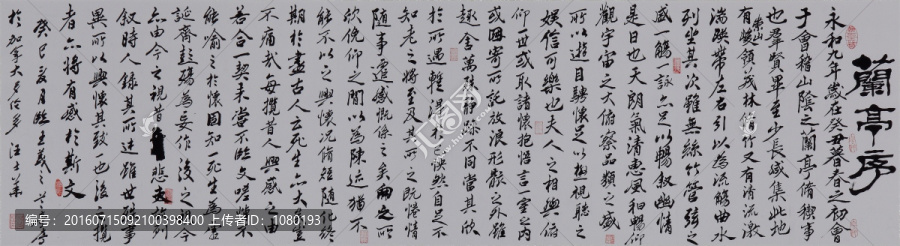 蘭亭序
永和九年歲在癸丑暮春之初會
于會稽山陰之蘭亭脩稧事
也羣賢畢至少長咸集此地
有崇山峻領茂林脩竹又有清流激
湍暎帶左右引以為流觴曲水
列坐其次雖無絲竹管弦之
盛一觴一詠亦足以暢敘幽情
是日也天朗氣清惠風和暢仰
觀宇宙之大俯察品類之盛
所以遊目騁懷足以極視聽之
娛信可樂也夫人之相與俯
仰一世或取諸懷抱悟言一室之內
或因寄所託放浪形骸之外雖
趣舍萬殊靜躁不同當其欣
於所遇輒得於己怏然自足不
知老之將至及其所之既惓情
隨事遷感慨係之矣向之所
欣俛仰之間以為陳迹猶不
能不以之興懷況脩短隨化終
期於盡古人云死生亦大矣豈
不痛哉每攬昔人興感之由
若合一契未嘗不臨文嗟悼不
能喻之於懷固知一死生為虛
誕齊彭殤為妄作後之視今
亦由今之視昔悲夫故列
敘時人錄其所述雖世殊事
異所以興懷其致一也後之攬
者亦將有感於斯文
癸巳夏月臨王羲之蘭亭序
於加拿大多倫多 汪士華
编号:20160715092100398400 上传者ID:1080193